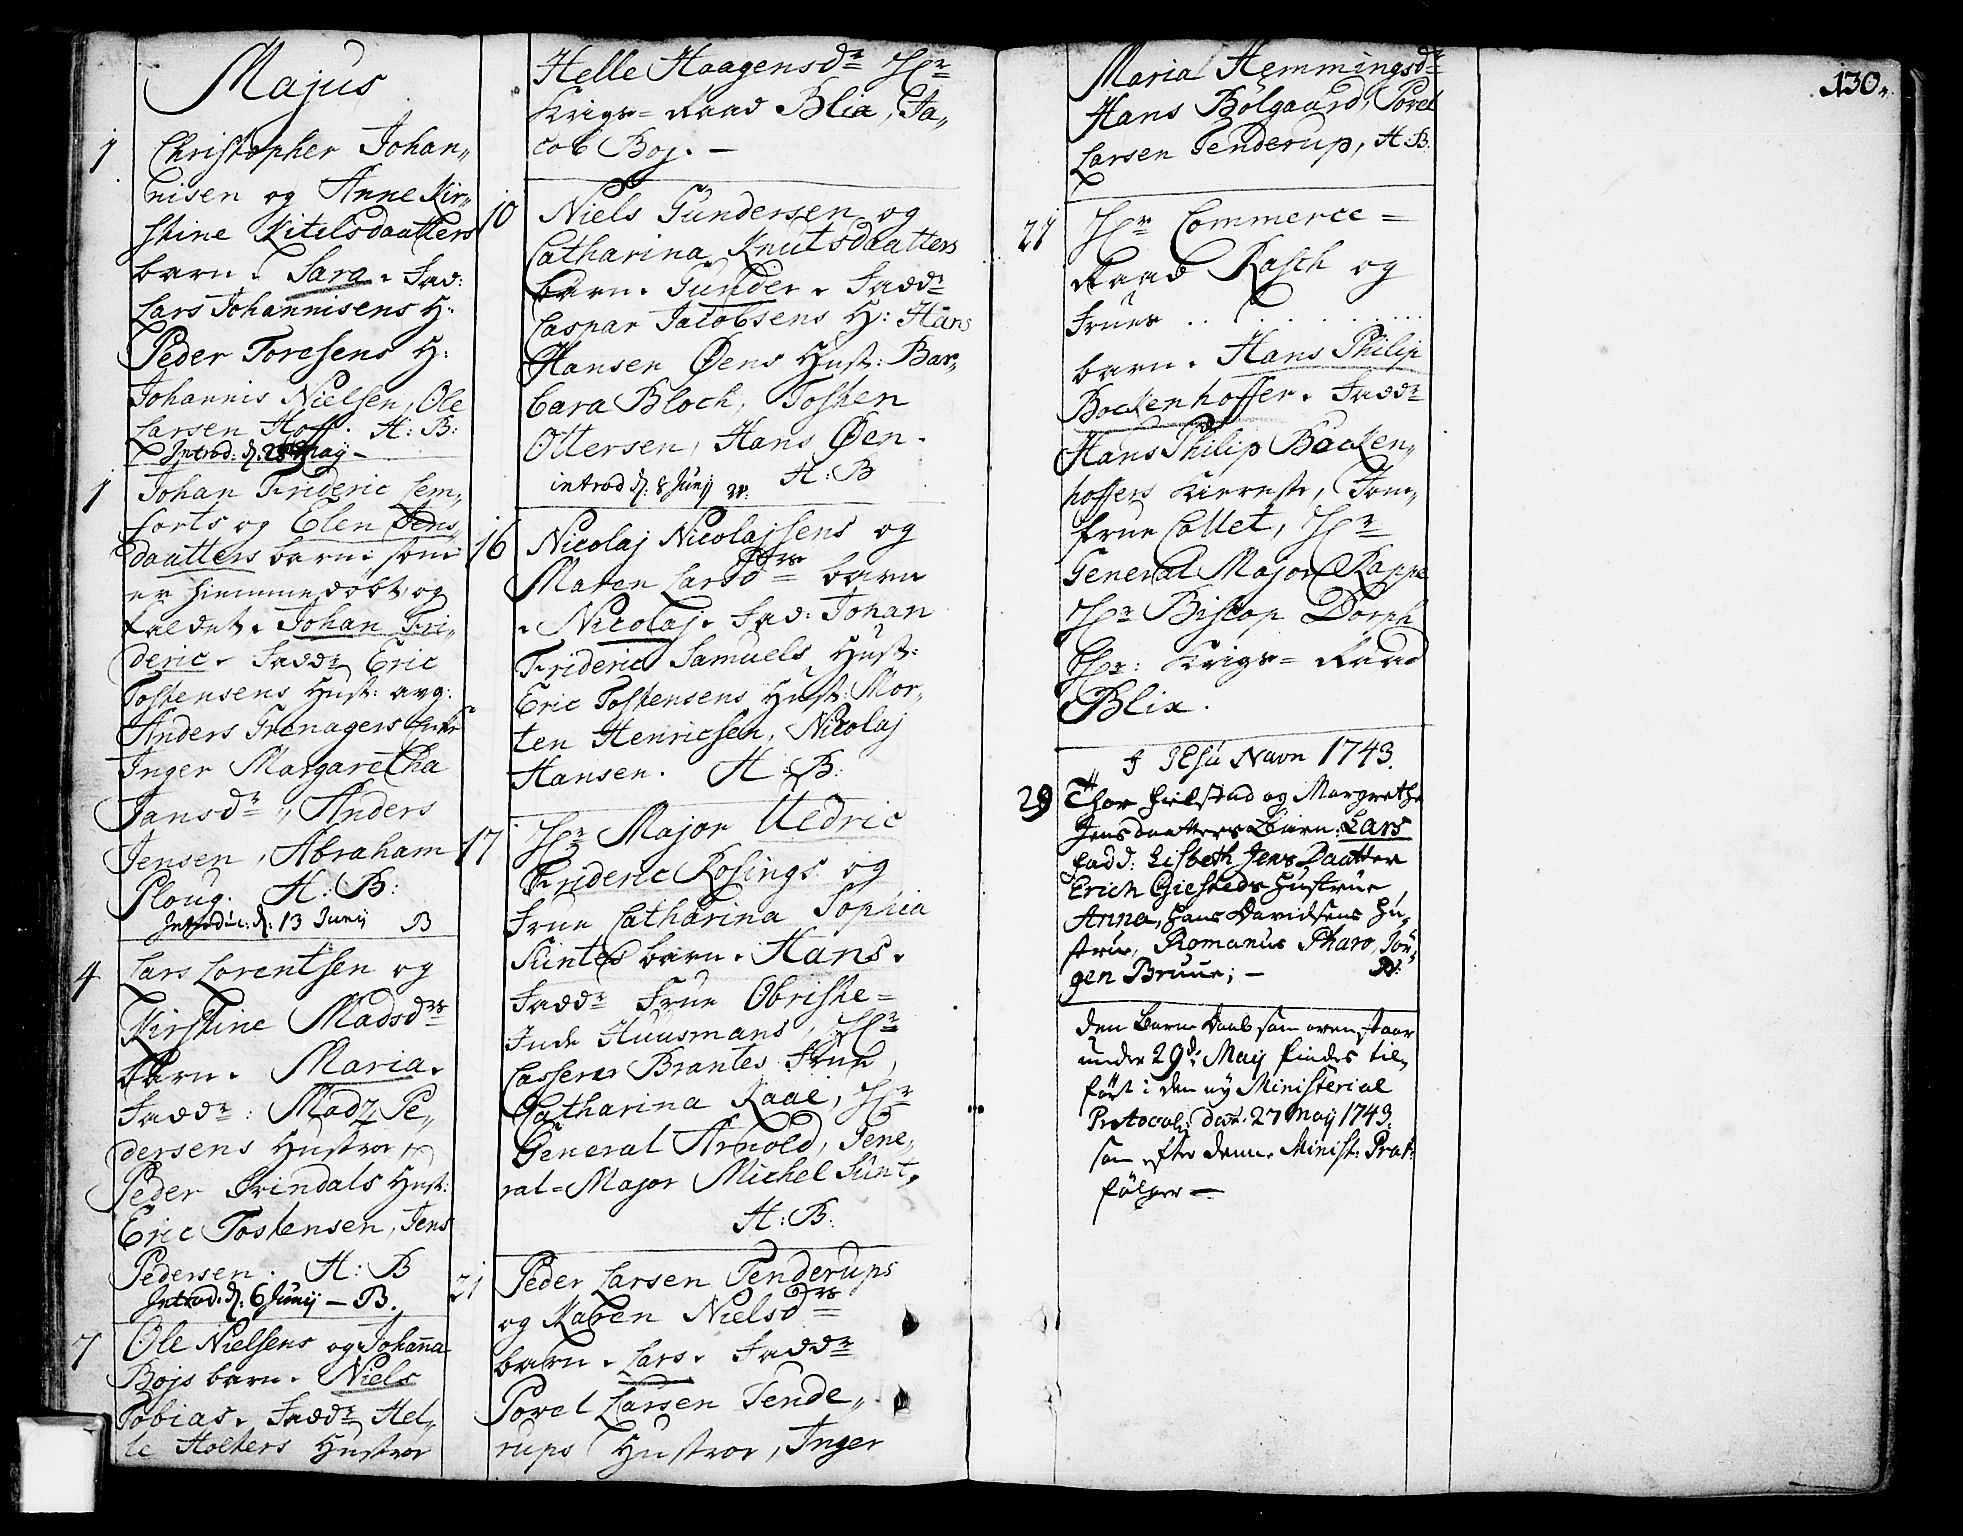 Majus
1 Christopher Johan„
nisen og Anne Kir„
stine Kitelsdaatters
barn. Sara. Fad:
Lars Johannisens H:
Peder Toresens H:
Johannis Nielsen, Ole
Larsen Hoff. H: B:
Introd: d. May –
1 Johan Frideric Lem„
forts og Elen Jens„
daatters barn, som
er hiemmedøbt og
kaldet. Johan Fri„
deric. Fadd.r Eric
Tostensens Hust: avg:
Anders Grenagers Enke
Inger Margaretha
Jansd.r, Anders
Jensen, Abraham
Ploug. H: B:
Introduc: d: 13 Junij B
4 Lars Lorentsen og
Kirstine Madsd.rs
barn. Maria.
Fadd.r: Madz Pe„
dersens Hustroe,
Peder Svindals Hust:
Eric Tostensen, Jens
Pedersen. H: B
Introd: d: 6 Junij – B.
7 Ole Nielsens og Johana
Bojs barn. Niels
Tobias. Fadd.r Hel„
le Holters Hustroe
Helle Haagensd.r H.r
Krigs= Raad Blix, Ja„
cob Boj. –
10 Niels Gundersen og
Catharina Knutsdaatters
barn. Gunder. Fadd.r
Caspar Jacobsens H: Hans
Hansen Øens Hust: Bar„
bara Bloch, Tosten
Ottersen, Hans Øen.
introd d: 8 Junij H: B
16 Nicolaj Nicolajsens og
Maren Larsd.rs barn
. Nicolaj. Fad: Johan
Frideric Samuels Hust:
Eric Tostensens Hust: Mor„
ten Henricsen, Nicolaj
Hansen. H: B:
17 H.r Major Uldric
Frideric Rosings og
Frue Catharina Sophia
Suntes barn. Hans.
Fadd.r Frue Obriste=
Inde Huusmans, H.r
Casserer Brantes Frue,
Catharina Kaae, H.r
General Arnold, Gene„
ral=Major Michel Sunt.
H: B:
21 Peder Larsen Tenderups
og Karen Nielsd.rs
barn. Lars. Fadd.r
Povel Larsen Tende„
rups Hustroe, Inger
Maria Hemmingsd.r
Hans Bølgaard, Povel
Larsen Tenderup, H: B:
21 H.r Commerce=
Raad Rasch og
Frues . . . . . . . . . .
barn. Hans Philip
Bockenhoffer. Fadd.r
Hans Philip Bocken„
hoffers Kiereste, Jom„
frue Collet, H.r
General Major Rappe
H.r Biscop Dorph
H.r: Krigs= Raad
Blix.
I JEsu Navn 1743.
29 Thor Fielstad og Margrethe
Jensdaatters Barn. Lars
Fadd: Lisbeth Jens Daatter
Erich Gielsteds Hustrue,
Anna, Hans Davidsens Hu„
strue, Romanus Pharo, Jör„
gen Bruun; –
den Barne Daab som oven staar
under 29d: Maij findes til„
ført i den ny Ministerial
Protocol; dat. 27 Maij 1743.
som efter denne Minist: Prot:
følger –
130.